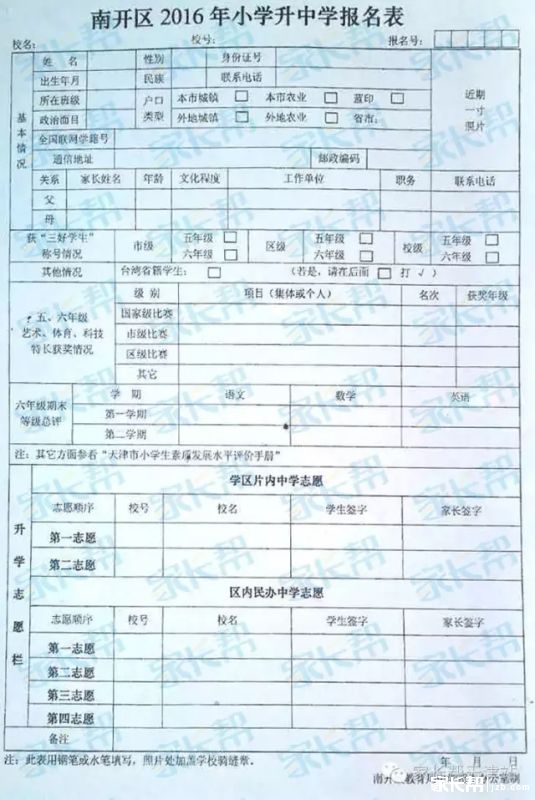 南开区 2016 年小学升中学报名表
校名: 校号: 报名号:
基本情况
姓 名 性别 身份证号
出生年月 民族 联系电话
所在班级 户口类型 本市城镇 本市农业 蓝印
政治面目 外地城镇 外地农业 省市:
近期一寸照片
全国联网学籍号
通信地址 邮政编码
关系 家长姓名 年龄 文化程度 工作单位 职务 联系电话
父
母
获“三好学生”称号情况 市级 五年级 六年级 区级 五年级 六年级 校级 五年级 六年级
其他情况 台湾省籍学生: (若是,请在后面 打 √ )
五、六年级艺术、体育、科技特长获奖情况
级 别 项目(集体或个人) 名次 获奖年级
国家级比赛
市级比赛
区级比赛
其它
六年级期末等级总评
学 期 语文 数学 英语
第一学期
第二学期
注:其它方面参看“天津市小学生素质发展水平评价手册”
升学志愿栏
学区片内中学志愿
志愿顺序 校号 校名 学生签字 家长签字
第一志愿
第二志愿
区内民办中学志愿
志愿顺序 校号 校名 学生签字 家长签字
第一志愿
第二志愿
第三志愿
第四志愿
备注
注:此表用钢笔或水笔填写,照片处加盖学校骑缝章。 年 月 日
家长帮
jzb.com